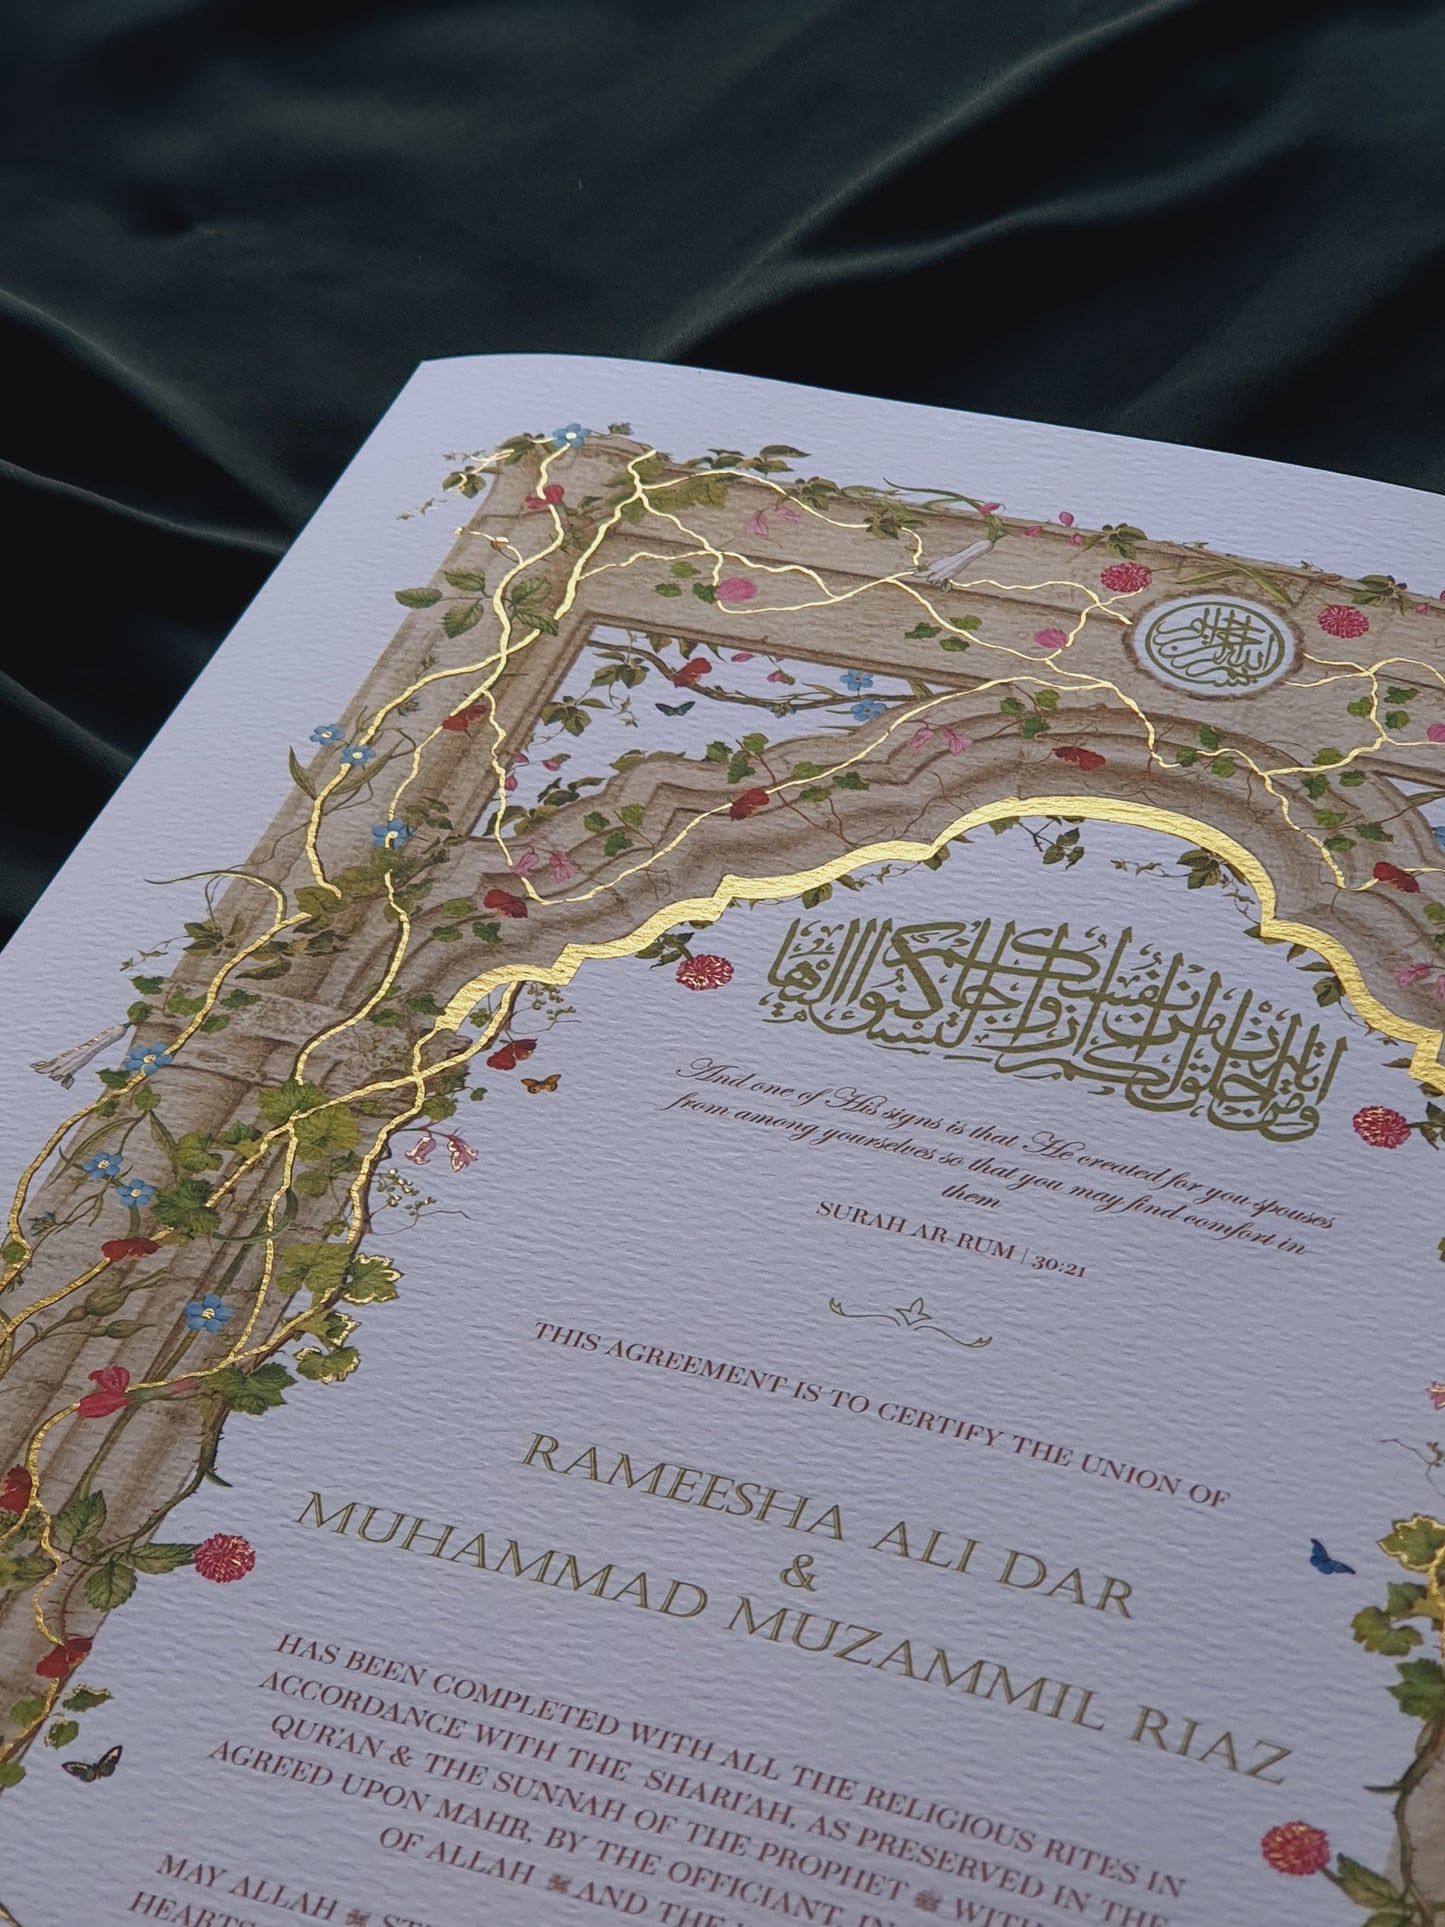 بسم الله الرحمن الرحيم
ومن اياته ان خلق لكم من انفسكم ازواجا لتسكنوا اليها
And one of His signs is that He created for you spouses
from among yourselves so that you may find comfort in
them
SURAH AR-RUM | 30:21
THIS AGREEMENT IS TO CERTIFY THE UNION OF
RAMEESHA ALI DAR
&
MUHAMMAD MUZAMMIL RIAZ
HAS BEEN COMPLETED WITH ALL THE RELIGIOUS RITES IN
ACCORDANCE WITH THE SHARI'AH, AS PRESERVED IN THE
QUR'AN & THE SUNNAH OF THE PROPHET ﷺ WITH
AGREED UPON MAHR, BY THE OFFICIANT, IN
OF ALLAH ﷻ AND THE
MAY ALLAH ﷻ
HEARTS